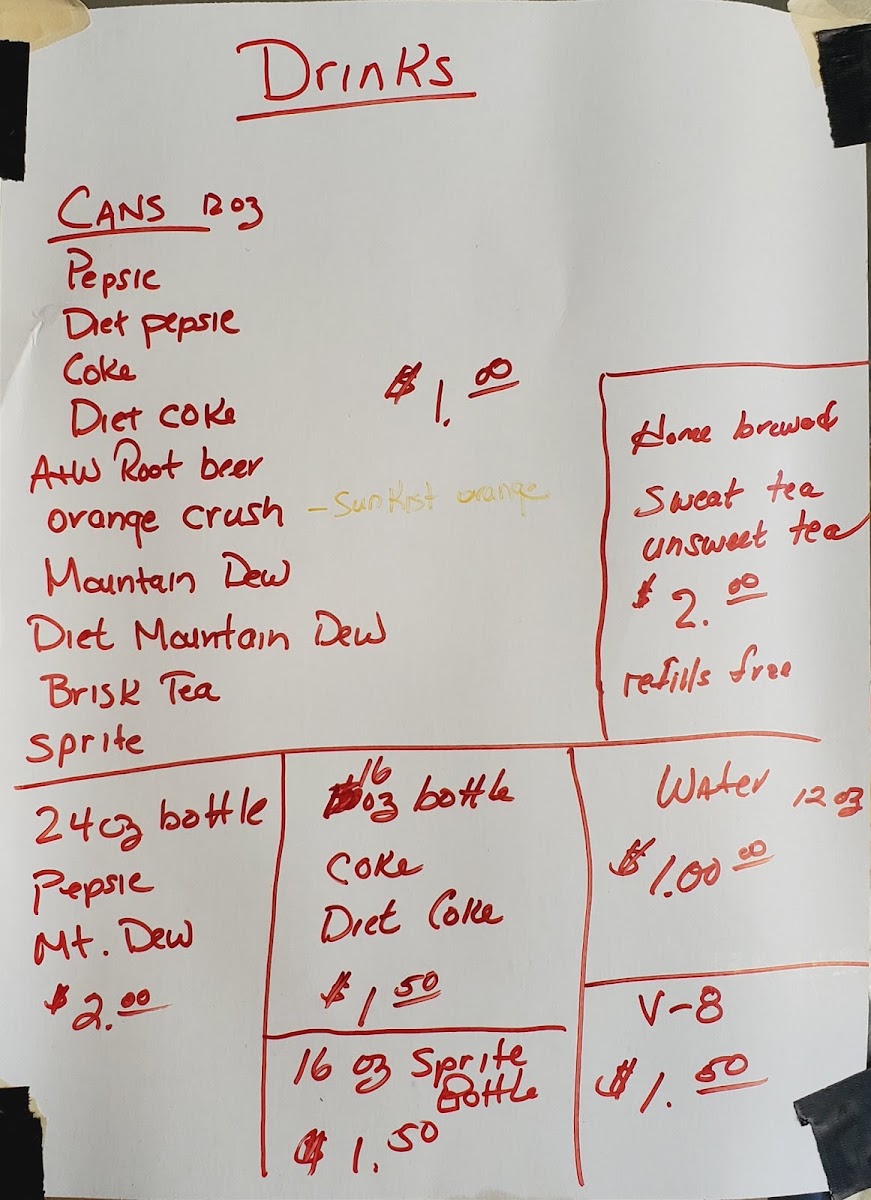 Drinks
CANS 12 oz
Pepsie
Diet pepsie
Coke
Diet coke
$1.00
A+W Root beer
orange crush - Sunkist orange
Mountain Dew
Diet Mountain Dew
Brisk Tea
sprite
Home brewed
Sweat tea
unsweet tea
$2.00
refills free
24 oz bottle
Pepsie
Mt. Dew
$2.00
16 oz bottle
Coke
Diet Coke
$1 50
16 oz Sprite
Bottle
$1.50
Water 12 oz
$1.00 00
V-8
$1.50